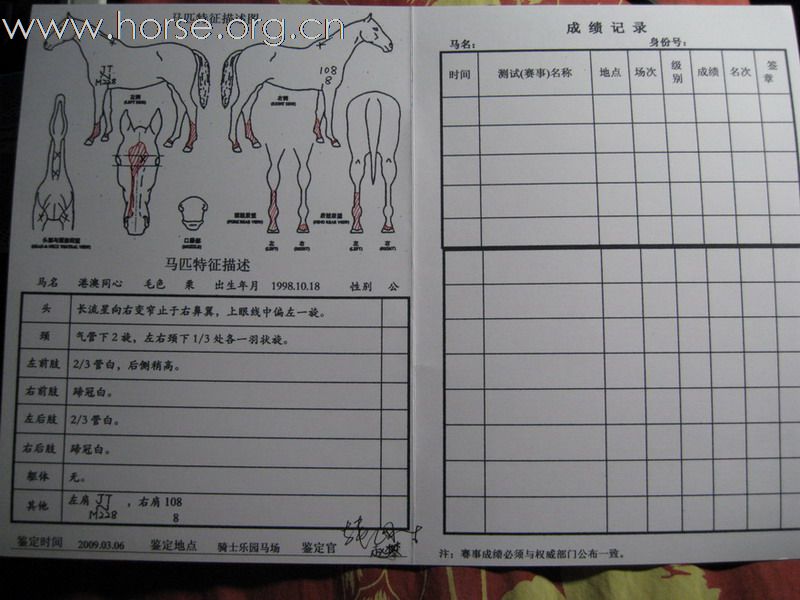 www.horse.org.cn
马匹特征描述图
JT
M228
108
8
左侧
(LEFT SIDE)
右侧
(RIGHT SIDE)
左
(LEFT)
右
(RIGHT)
左
(LEFT)
右
(RIGHT)
口鼻部
(MUZZLE)
马匹特征描述
马名 港澳同心 毛色 栗 出生年月 1998.10.18 性别 公
头 长流星向右变窄止于右鼻翼，上眼线中偏左一旋。
颈 气管下2旋，左右颈下1/3处各一羽状旋。
左前肢 2/3管白，后侧稍高。
右前肢 蹄冠白。
左后肢 2/3管白。
右后肢 蹄冠白。
躯体 无。
其他 左肩 JT M228 ，右肩 108 8
鉴定时间 2009.03.06 鉴定地点 骑士乐园马场 鉴定官
成绩记录
马名： 身份号：
时间 测试(赛事)名称 地点 场次 级别 成绩 名次 签章
注：赛事成绩必须与权威部门公布一致。